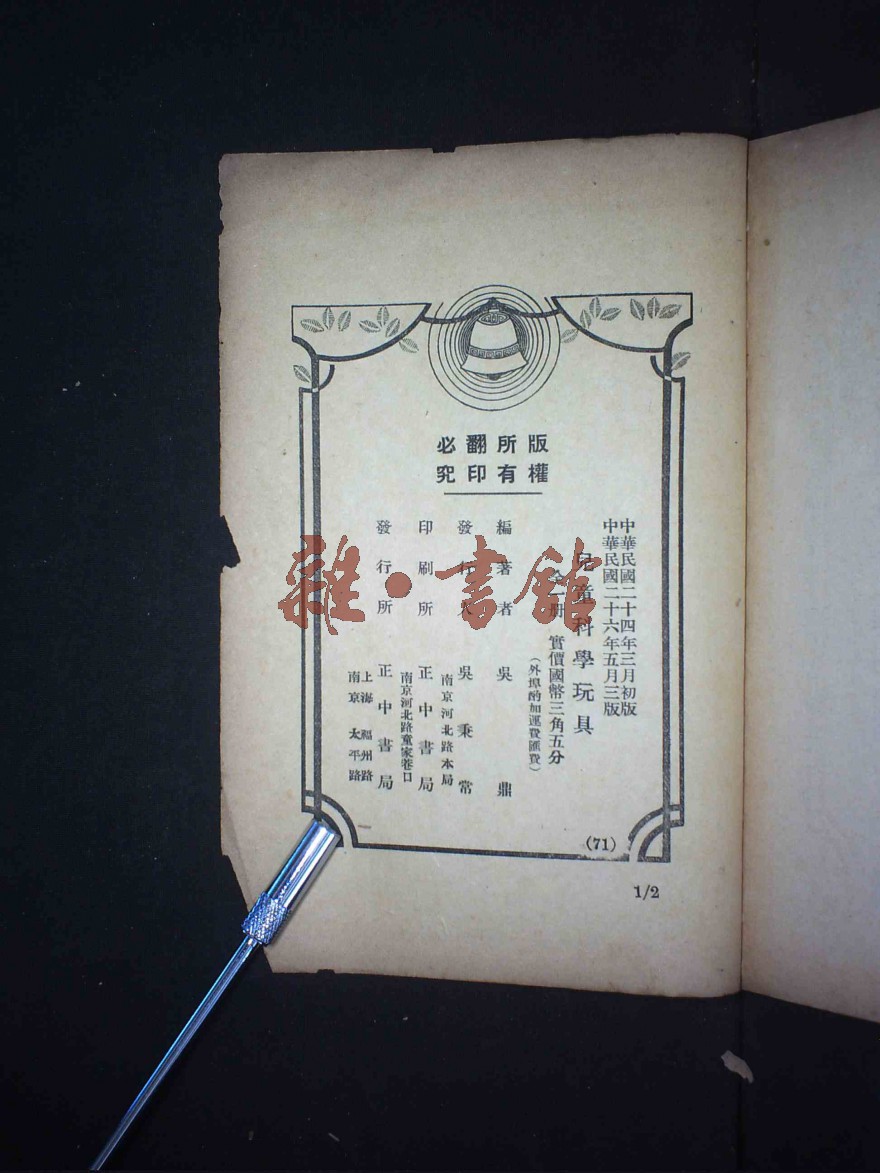 版權所有
翻印必究
中華民國二十四年三月初版
中華民國二十六年五月三版
兒童科學玩具
全一冊 實價國幣三角五分
(外埠酌加運費匯費)
編著者 吳鼎
發行人 吳秉常
南京河北路本局
印刷所 正中書局
南京河北路童家巷口
發行所 正中書局
上海福州路
南京太平路
(71)
1/2
雜·書館